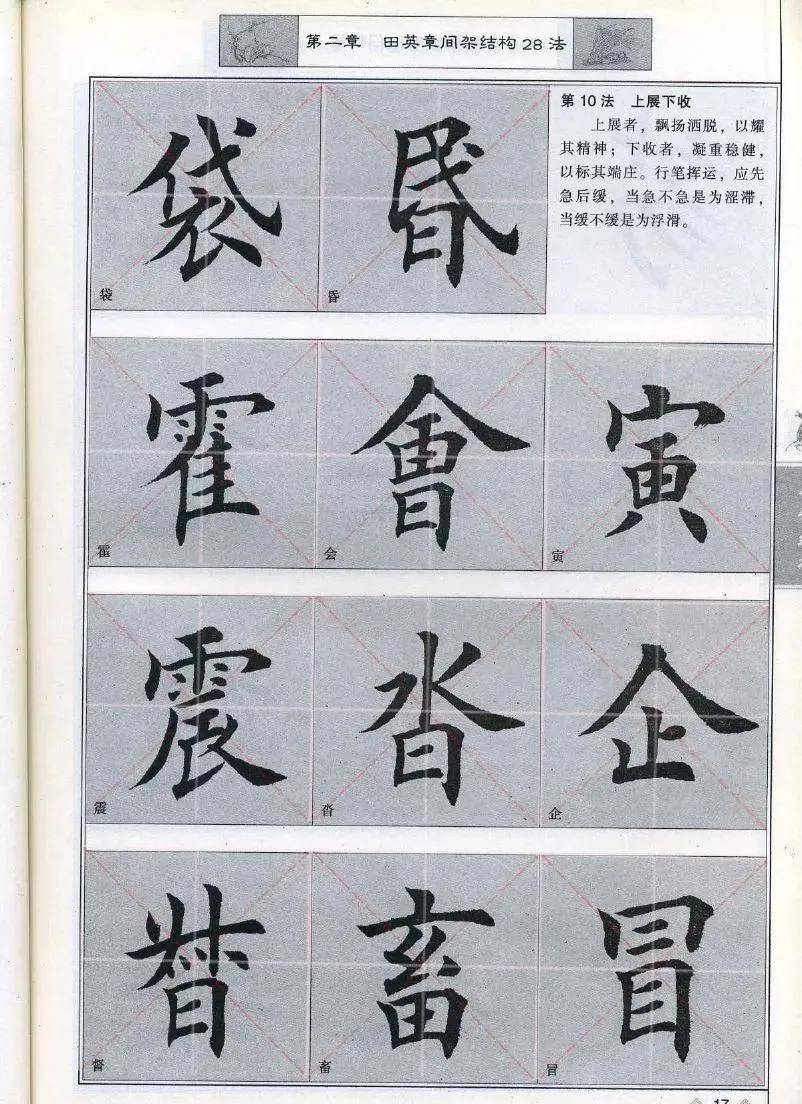 第二章 田英章间架结构28法
第10法 上展下收
上展者，飘扬洒脱，以耀
其精神；下收者，凝重稳健，
以标其端庄。行笔挥运，应先
急后缓，当急不急是为涩滞，
当缓不缓是为浮滑。
袋 昬
袋 昏
霍 會 寅
霍 会 寅
震 沓 企
震 沓 企
督 畜 冒
督 畜 冒
17